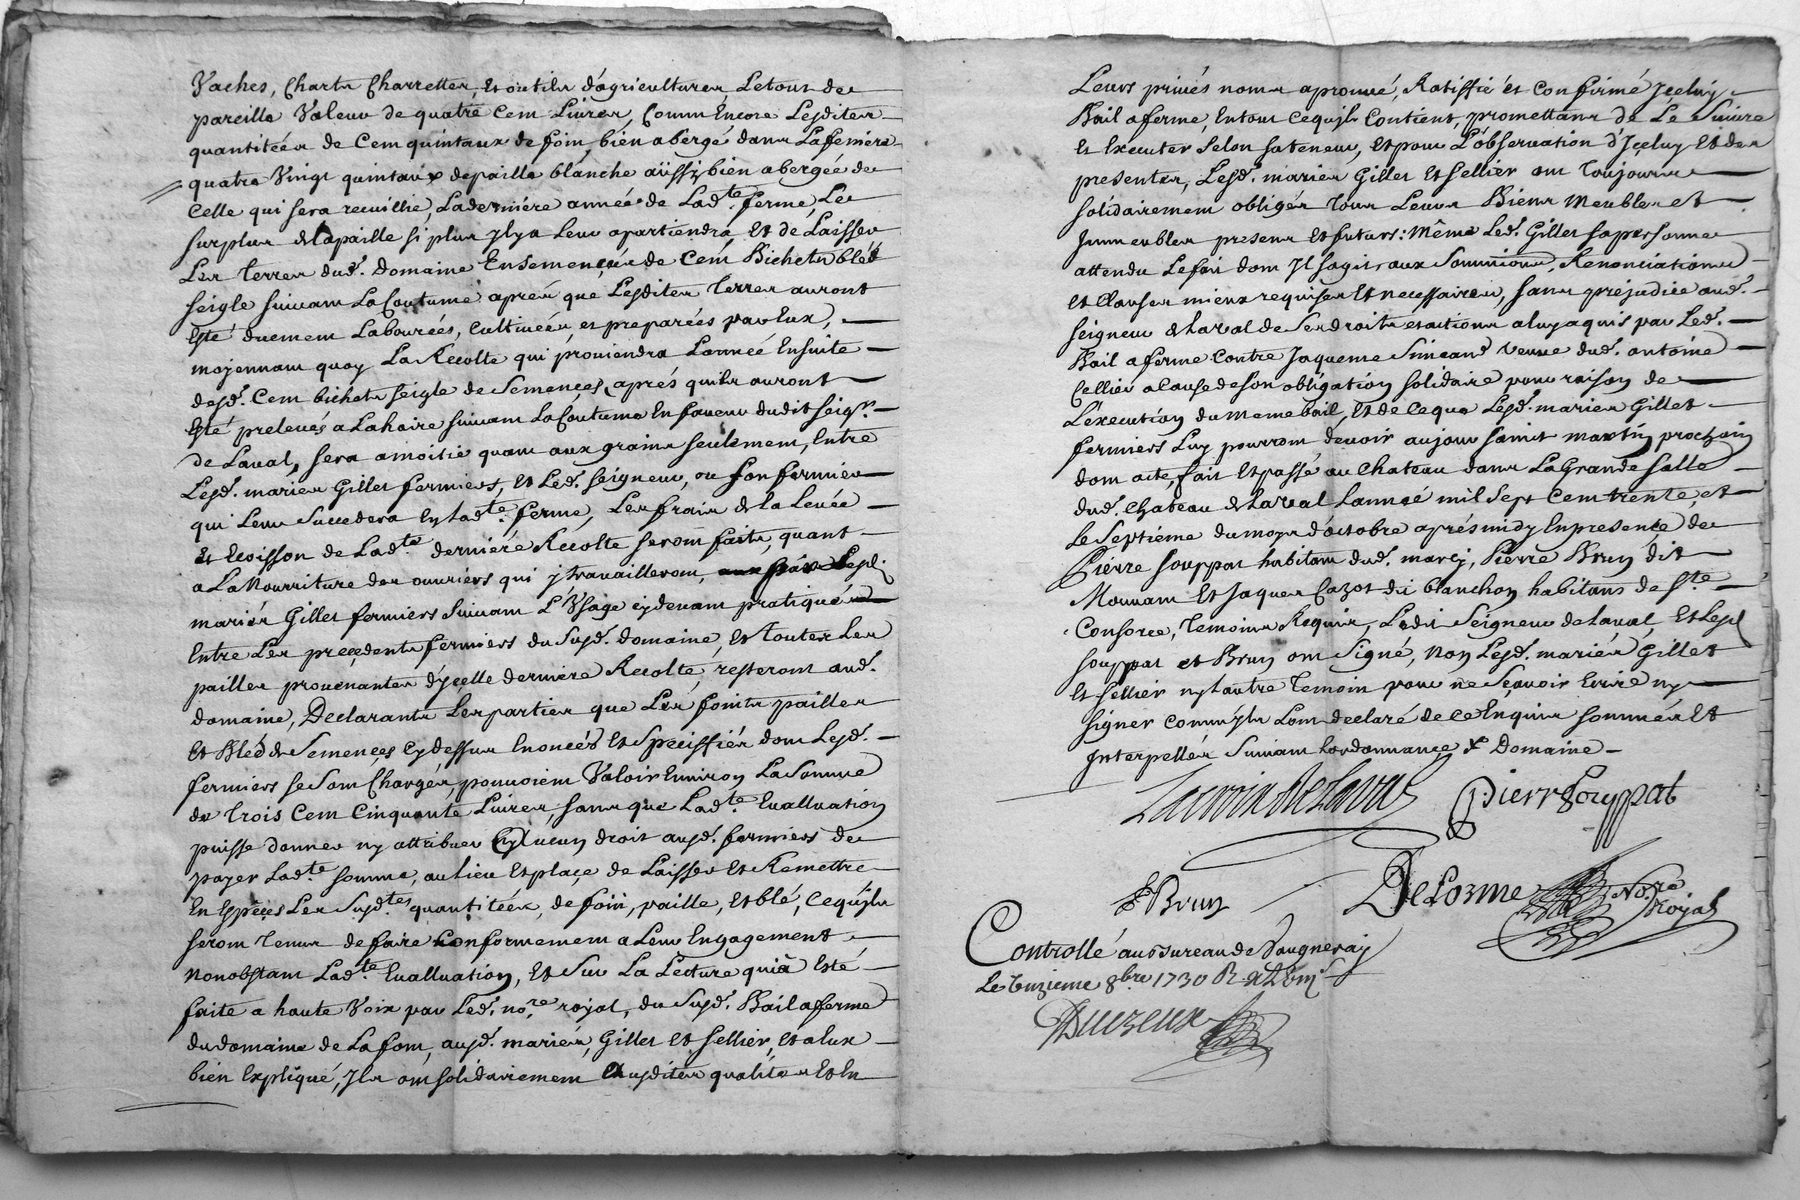 Vaches, Charts Charrettes, et outils d'agricultures Letout de
pareille Valeur de quatre Cent Livres, Comm'Encore Lesdites
quantitées de Cent quintaux de foin, bien abergé dans Lafeniere
quatre Vingt quintaux depaille blanche aüssy bien abergée de
Celle qui sera recuillie, Laderniére année de Lad.te ferme, Le
surplus delapaille si plus Jlya Leur apartiendra Et de Laisser
Les terres dud. Domaine Ensemencées de Cent Bichets bled
seigle suivant LaCoutume aprés que Lesdites terres auront
Esté duement Labourées, Cultivées et preparées par Eux,
moyennant quoy La Recolte qui proviendra Lannée Ensuite
desd. Cent bichets seigle de Semences, aprés quils auront
Esté prelevés a Lahaire suivant LaCoutume En faveur dudit seig.r
de Laval, sera amoitié quant aux grains seulement, Entre
Lesd. mariés Gillet fermiers, et Led. seigneur, ou son fermier
qui Leur Succedera En Lad.te ferme, Les frais de la Levée
et Ecoisson de Lad.te derniére Recolte seront faits, quant
a La Nourriture des ouvriers qui y travailleront, par Lesd.
mariés Gillet fermiers suivant L'Usage cydevant pratiqué
Entre Les precedents fermiers du Susd. domaine, et toutes Les
pailles provenantes d'ycelle derniere Recolte, resteront aud.
domaine, Declarants Lesparties que Les foints pailles
et Bled de Semences, Cydessus Enoncés et Speciffiés dont Lesd.
fermiers se sont Chargés, pouvoient Valoir Environ La Somme
de trois Cent Cinquante Livres, sans que Lad.te Evalluation
puisse donner ny attribuer aucun droit ausd. fermiers de
payer Lad.te somme, aulieu et plaçe de Laisser et Remettre
En Espéçes Les Susd.tes quantitées, de foin, paille, et blé, Cequ'Jls
seront tenus de faire Conformement a Leur Engagement
nonobstant Lad.te Evalluation, Et Sur La Lecture quia Esté
faite a haute Voix par Led. no.re royal, du Susd. Bail aferme
du domaine de Lafont, ausd. mariés, Gillet et Sellier, et a Eux
bien Expliqué, Jls ont solidairement Esdites qualités et En
Leurs privés noms aprouvé, Ratiffié et Confirmé Jceluy
Bail aferme, Entout Cequ'Jls Contient, promettans de Le Suivre
Et Executer Selon sateneur, et pour L'observation d'Jceluy Et des
presentes, Lesd. mariés Gillet et Sellier ont toujours
solidairement obligés tous Leurs Biens Meubles et
Jmmeubles presens et futurs: Même Led. Gillet sapersonne
attendu Lefait dont Jl sagit, aux Soumissions, Renonciations
et Clauses mieux requises et necessaires, sans préjudice aud.
seigneur de Laval de Ses droits et actions a luy aquis par Led.
Bail aferme Contre Jaqueme Simeand veuve dud. antoine
Cellier a Cause de son obligation solidaire pour raison de
L'execution du meme bail, Et de Ceque Lesd. mariés Gillet
fermiers Luy pourront devoir aujour saint martin prochain
dont acte, fait Et passé au Chateau dans LaGrande Salle
dud. Chateau de Laval Lannée mil sept Cent trente, et
Le Septiéme du moys d'octobre aprés midy En presence, de
Pierre Souppat habitant dud. marcy, Pierre Brun dit
Mornant Et Jaques Cazot dit blanchon habitans de S.te
Consorce, temoins Requis, Ledit Seigneur de Laval, et Lesd.
Souppat et Brun ont Signé, non Lesd. mariés Gillet
Et Sellier ny Lautre temoin pour ne Sçavoir Ecrire ny
signer Comm'Jls Lont declaré de Ce Enquis sommés Et
Interpellés Suivant Lordonnance & Domaine
Lacroix de Laval
Pierre Souppat
P Brun
DeLorme No.re Royal
Controllé au Bureau de Vaugneray
Le Unzieme 8bre 1730